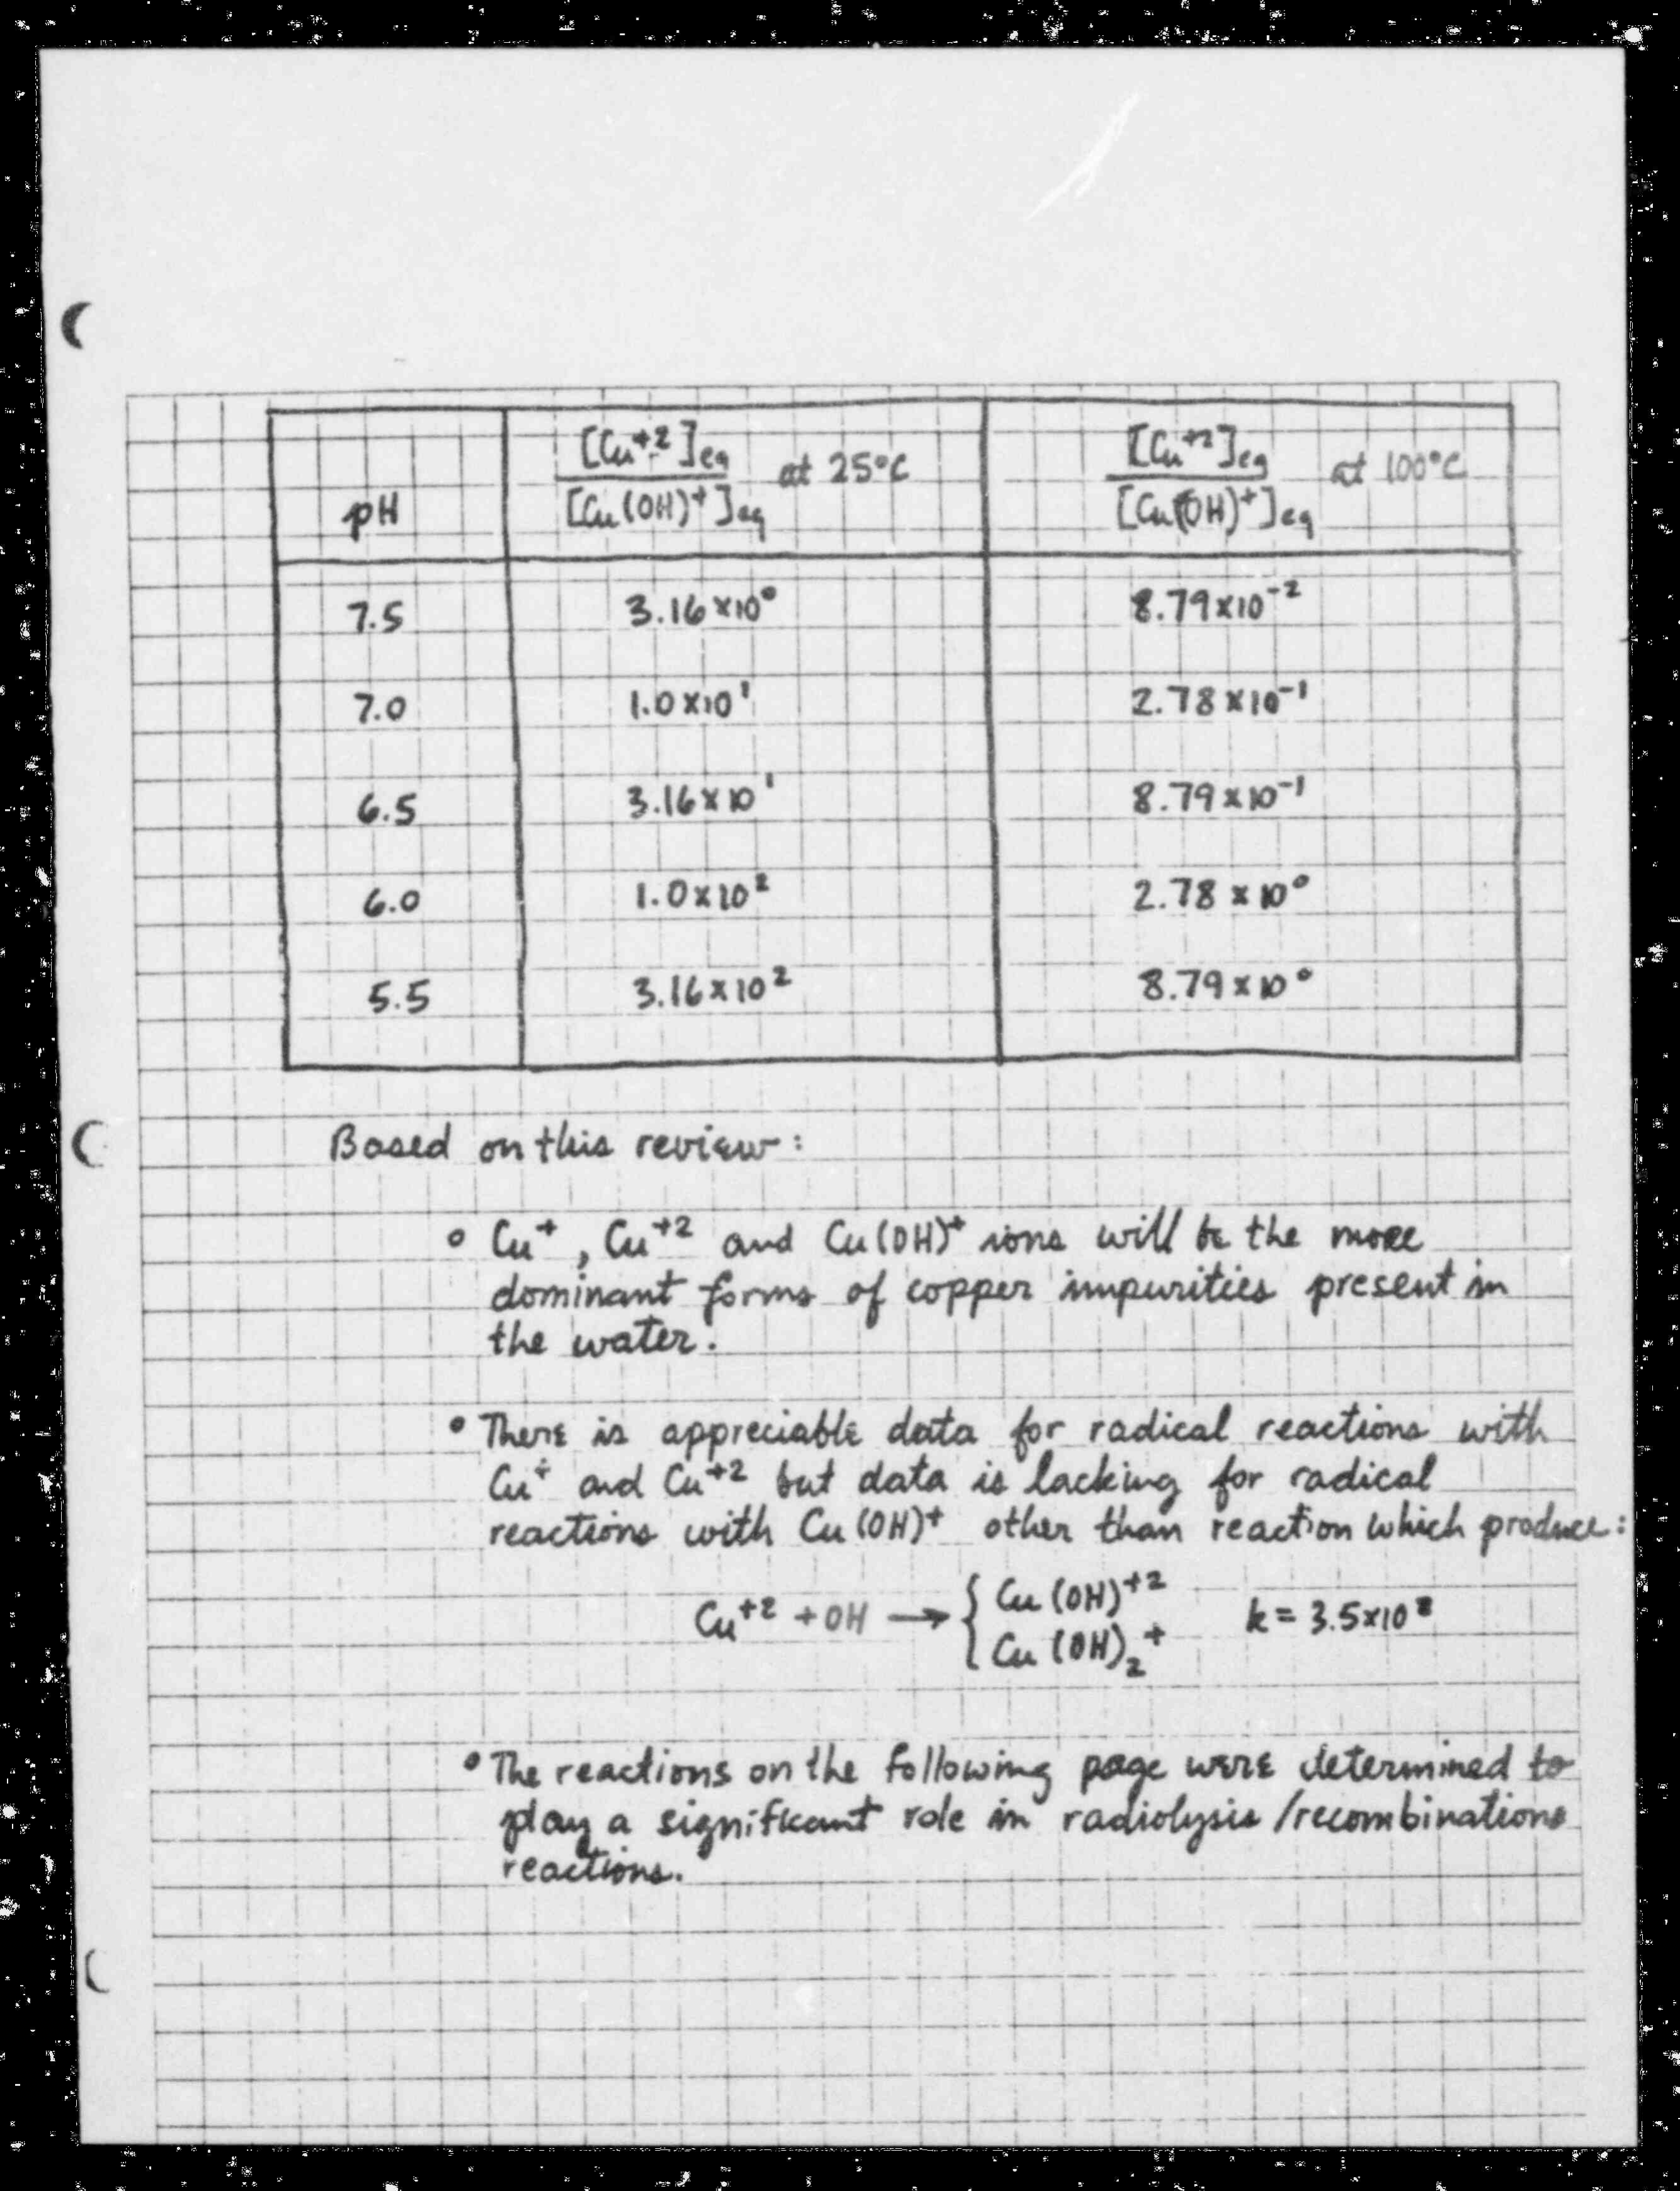 pH [Cu⁺²]eq / [Cu(OH)⁺]eq at 25°C [Cu⁺²]eq / [Cu(OH)⁺]eq at 100°C
7.5 3.16×10⁰ 8.79×10⁻²
7.0 1.0×10¹ 2.78×10⁻¹
6.5 3.16×10¹ 8.79×10⁻¹
6.0 1.0×10² 2.78×10⁰
5.5 3.16×10² 8.79×10⁰
Based on this review:
• Cu⁺, Cu⁺² and Cu(OH)⁺ ions will be the more
dominant forms of copper impurities present in
the water.
• There is appreciable data for radical reactions with
Cu⁺ and Cu⁺² but data is lacking for radical
reactions with Cu(OH)⁺ other than reaction which produce:
Cu⁺² + OH → { Cu(OH)⁺² k = 3.5×10⁸
Cu(OH)₂⁺
• The reactions on the following page were determined to
play a significant role in radiolysis/recombinations
reactions.